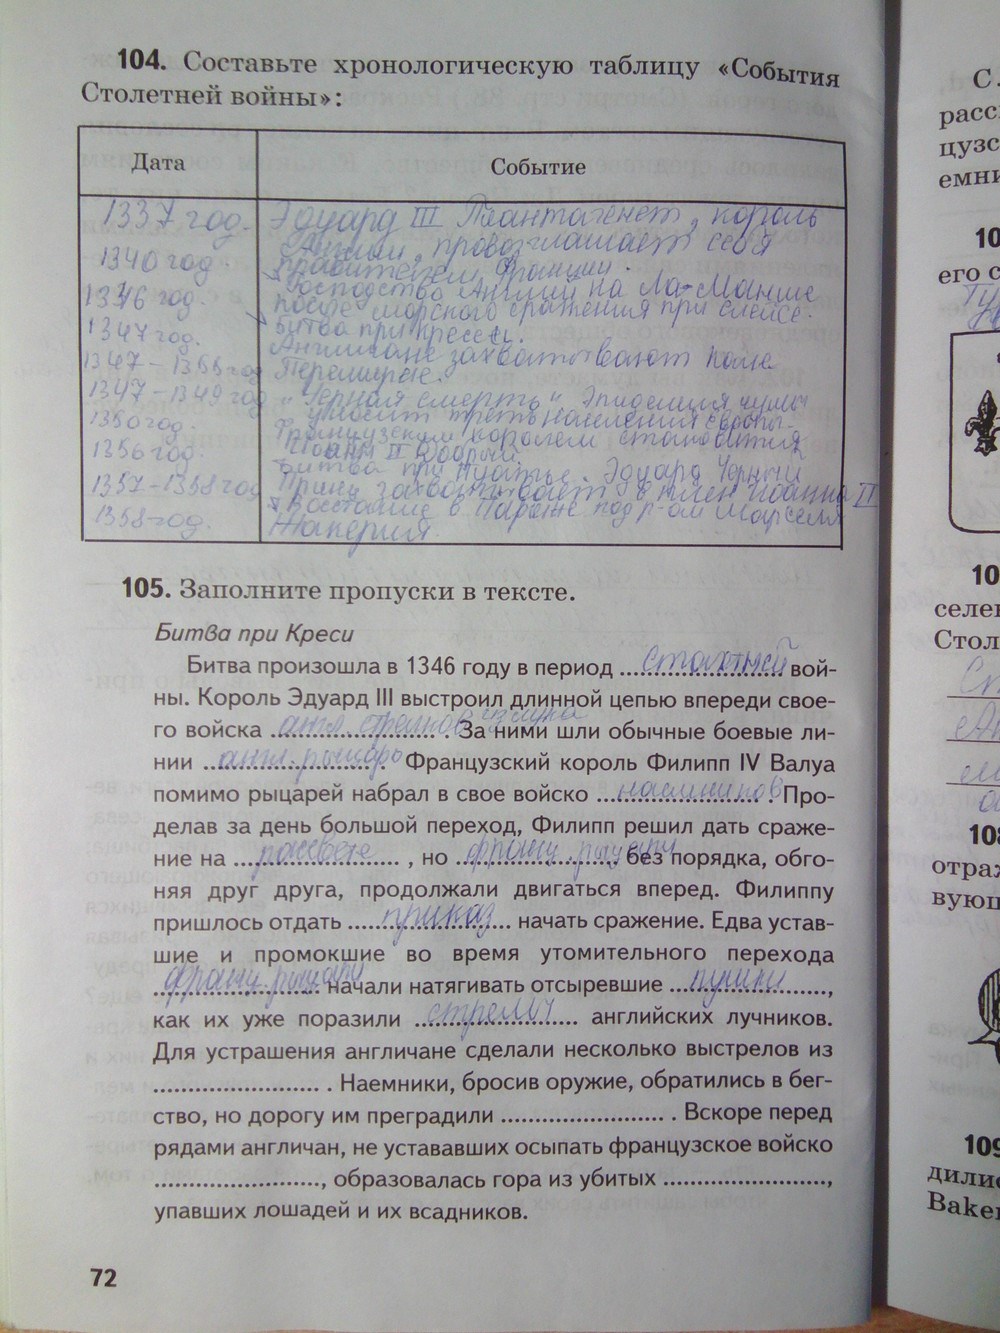 104. Составьте хронологическую таблицу «События
Столетней войны»:
Дата
Событие
1337 год.
Эдуард III Плантагенет, король
Англии, провозглашает себя
правителем Франции.
1340 год
Господство Англии на Ла-Манше
после морского сражения при Слейсе.
1346 год.
Битва при Кресси.
1347 год.
Англичане захватывают
1347 – 1355 год
Перемирие.
1347 – 1349 год
"Черная смерть". Эпидемия чумы
уносит треть населения Европы.
1350 год.
Французским королем становится
Иоанн II Добрый
1356 год.
Битва при Пуатье. Эдуард Черный
Принц захватывает в плен Иоанна II
1357 – 1358 год
Восстание в Париже под р-ом Марселя
1358 год.
Жакерия.
105. Заполните пропуски в тексте.
Битва при Креси
Битва произошла в 1346 году в период ... Столетней вой-
ны. Король Эдуард III выстроил длинной цепью впереди свое-
го войска англ. стрелков из лука. За ними шли обычные боевые ли-
нии ... англ. рыцарь. Французский король Филипп IV Валуа
помимо рыцарей набрал в свое войско ... наемников. Про-
делав за день большой переход, Филипп решил дать сраже-
ние на ... рассвете ..., но ... франц. рыцари, без порядка, обго-
няя друг друга, продолжали двигаться вперед. Филиппу
пришлось отдать ... приказ ... начать сражение. Едва устав-
шие и промокшие во время утомительного перехода
франц. рыцари начали натягивать отсыревшие ... пушки ...,
как их уже поразили ... стрелы ... английских лучников.
Для устрашения англичане сделали несколько выстрелов из
........................ . Наемники, бросив оружие, обратились в бег-
ство, но дорогу им преградили ........................ . Вскоре перед
рядами англичан, не устававших осыпать французское войско
........................, образовалась гора из убитых ........................,
упавших лошадей и их всадников.
72
С
расс
цузс
емни
10
его с
10
селен
Стол
108
отра
вуюп
109
дилис
Baker